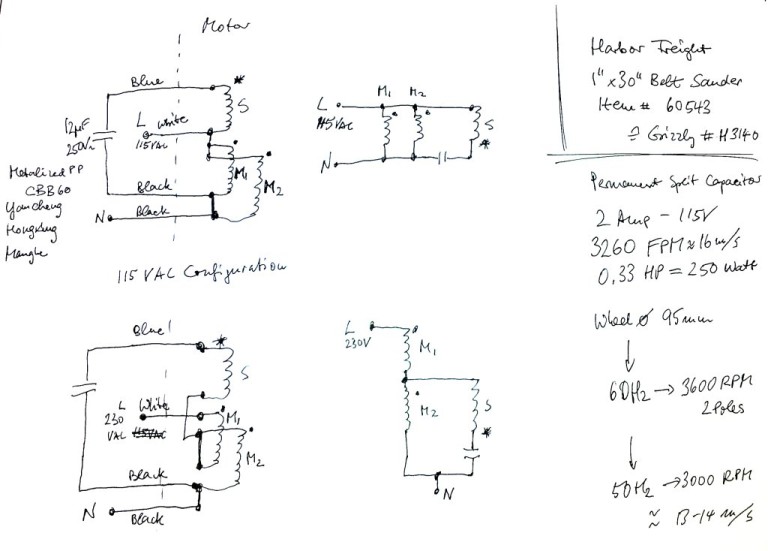 Motor
Blue
*
S
12µF
250V~
L White
115VAC
Metalized PP
CBB60
Yancheng
Hongming
M1
M2
Black
Black
N
115 VAC Configuration
L
115VAC
M1 M2
S
*
N
Harbor Freight
1" x 30" Belt Sander
Item # 60543
≘ Grizzly # H3140
Permanent Split Capacitor
2 Amp - 115V
3260 FPM ≈ 16 m/s
0,33 HP = 250 Watt
Wheel ø 95mm
60Hz → 3600 RPM
2 Poles
50Hz → 3000 RPM
≈ 13-14 m/s
Blue!
*
S
L White
230
VAC 115VAC
M1
M2
Black
N
Black
L
230V
M1
M2
S
*
N